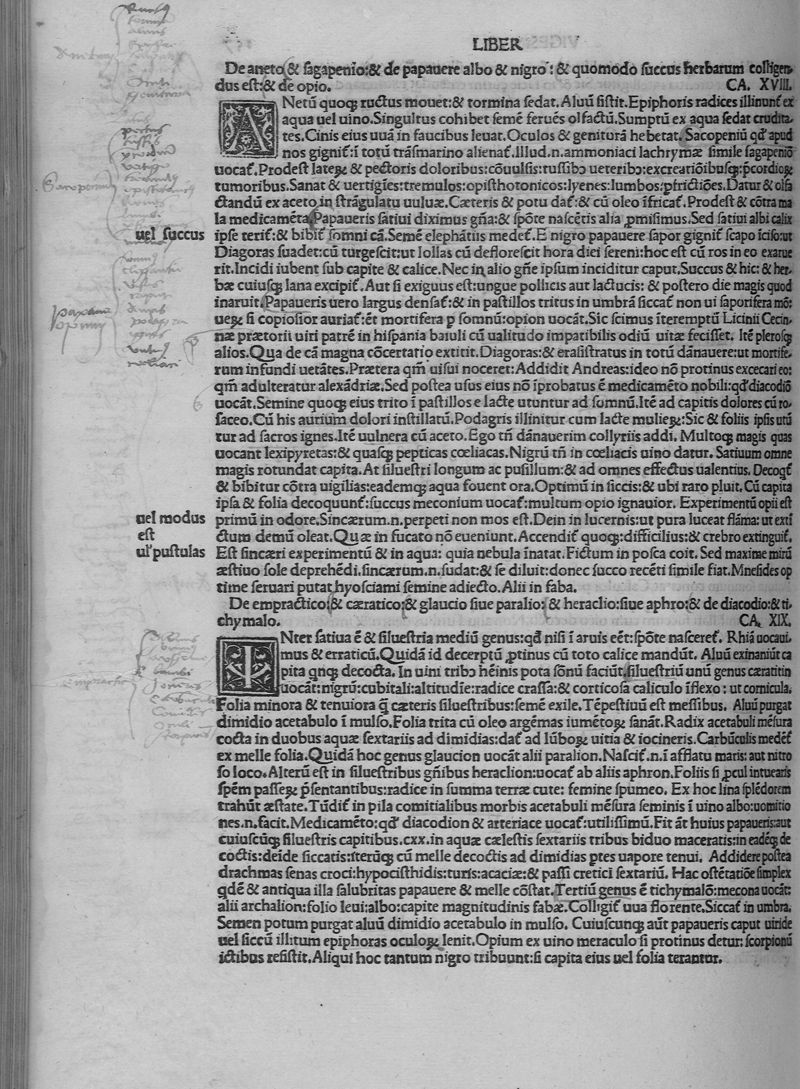 LIBER
De aneto & sagapenio:& de papauere albo & nigro: & quomodo succus herbarum colligen
dus est:& de opio. CA. XVIII.
ANetū quoqꝫ ructus mouet:& tormina sedat.Aluū sistit.Epiphoris radices illinunt̄ ex
aqua uel uino.Singultus cohibet semē feruēs olfactū.Sumptū ex aqua sedat crudita
tes.Cinis eius uuā in faucibus leuat.Oculos & geniturā hebetat.Sacopeniū qđ apud
nos gignit̄:ī totū trāsmarino alienat̄.Illud.n.ammoniaci lachrymæ simile sagapeniō
uocat̄.Prodest lateꝝ & pectoris doloribus:cōuulsis:tussibꝰ ueteribꝰ:excreatiōibusqꝫ:p̄cordioꝝ
tumoribus.Sanat & uertigīes:tremulos:opisthotonicos:lyenes:lumbos:pfrictiōes.Datur & olfa
ctandū ex aceto in strāgulatu uuluæ.Cæteris & potu dat̄:& cū oleo īfricat̄.Prodest & cōtra ma
la medicamēta.Papaueris satiui diximus gn̄a:& spōte nascētis alia ꝓmisimus.Sed satiui albi calix
uel succus
ipse terit̄:& bibit̄ somni cā.Semē elephātiis medet̄.E nigro papauere sapor gignit̄ scapo īciso:ut
Diagoras suadet:cū turgescit:ut Iollas cū deflorescit hora diei sereni:hoc est cū ros in eo exarue
rit.Incidi iubent sub capite & calice.Nec in alio gn̄e ipsum inciditur caput.Succus & hic:& her
bæ cuiusqꝫ lana excipit̄.Aut si exiguus est:ungue pollicis aut lactucis:& postero die magis quod
inaruit.Papaueris uero largus densat̄:& in pastillos tritus in umbrā siccat̄ non ui saporifera mō:
ueꝝ si copiosior auriat̄:ēt mortifera p somnū:opion uocāt.Sic scimus īteremptū Licinii Cecin
næ prætorii uiri patrē in hispānia bauili cū ualitudo impatibilis odiū uitæ fecisset. Itē plerosqꝫ
alios.Qua de cā magna cōcertatio extitit.Diagoras:& erasistratus in totū dānauere:ut mortife
rum infundi uetātes.Prætera qm̄ uisui noceret:Addidit Andreas:ideo nō protinus excecari eo:
qm̄ adulteratur alexādriæ.Sed postea usus eius nō īprobatus ē medicamēto nobili:qđ diacodiō
uocāt.Semine quoqꝫ eius trito ī pastillos e lacte utuntur ad somnū.Itē ad capitis dolores cū ro
saceo.Cū his aurium dolori instillatū.Podagris illinitur cum lacte mulieꝝ:Sic & foliis ipsis utū
tur ad sacros ignes.Itē uulnera cū aceto.Ego tn̄ dānauerim collyriis addi. Multoqꝫ magis quas
uocant lexipyretas:& quasqꝫ pepticas cœliacas.Nigrū tn̄ in cœliacis uino datur. Satiuum omne
magis rotundat capita.At siluestri longum ac pusillum:& ad omnes effectus ualentius.Decoqt̄
& bibitur cōtra uigilias:eademqꝫ aqua fouent ora.Optimū in siccis:& ubi raro pluit.Cū capita
ipsa & folia decoquunt̄:succus meconium uocat̄:multum opio ignauior. Experimentū opii est
uel modus
est
primū in odore.Sincærum.n.perpeti non mos est.Dein in lucernis:ut pura luceat flāma:ut extī
ctum demū oleat.Quæ in fucato nō eueniunt.Accendit̄ quoqꝫ:difficilius:& crebro extinguit̄.
ul' pustulas
Est sincæri experimentū & in aqua: quia nebula īnatat.Fictum in posca coit. Sed maxime mirū
æstiuo sole deprehēdi.sincærum.n.sudat:& se diluit:donec succo recēti simile fiat.Mnesides op
time seruari putat hyosciami semine adiecto.Alii in faba.
De empractico:& cæratico:& glaucio siue paralio: & heraclio:siue aphro:& de diacodio:& ti
chymalo. CA. XIX.
INter satiua ē & siluestria mediū genus:qđ nisi ī aruis eēt:spōte nasceret̄. Rhiā uocaui
mus & erraticū.Quidā id decerptū ꝓtinus cū toto calice mandūt. Aluū exinaniūt ca
pita qnqꝫ decocta. In uini tribꝰ hēinis pota sōnū faciūt.siluestriū unū genus cæratitin
uocāt:nigrū:cubitali:altitudīe:radice crassa:& corticosa caliculo īflexo : ut cornicula.
Folia minora & tenuiora q̄ cæteris siluestribus:semē exile.Tēpestiuū est messibus. Aluū purgat
dimidio acetabulo ī mulso.Folia trita cū oleo argēmas iumētoꝝ sanāt.Radix acetabuli mēsura
cocta in duobus aquæ sextariis ad dimidias:dat̄ ad lūboꝝ uitia & iocineris.Carbūculis medet̄
ex melle folia.Quidā hoc genus glaucion uocāt alii paralion.Nascit̄.n.ī afflatu maris: aut nitro
so loco.Alterū est in siluestribus gn̄ibus heraclion:uocat̄ ab aliis aphron.Foliis si ꝓcul intuearis
spēm passeꝝ p̄sentantibus:radice in summa terræ cute: femine spumeo. Ex hoc lina splēdorem
trahūt æstate.Tūdit̄ in pila comitialibus morbis acetabuli mēsura seminis ī uino albo:uomitio
nes.n.facit.Medicamēto:qđ diacodion & arteriace uocat̄:utilissimū.Fit āt huius papaueris:aut
cuiuscūqꝫ siluestris capitibus.cxx.in aquæ cælestis sextariis tribus biduo maceratis:in eadēqꝫ de
coctis:deide siccatis:iterūqꝫ cū melle decoctis ad dimidias ptes uapore tenui. Addidere postea
drachmas senas croci:hypocisthidis:turis:acaciæ:& passi cretici sextariū. Hac ostētatiōe simplex
qdē & antiqua illa salubritas papauere & melle cōstat.Tertiū genus ē tichymalō:mecona uocāt:
alii archalion:folio leui:albo:capite magnitudinis fabæ.Colligit̄ uua florente.Siccat̄ in umbra.
Semen potum purgat aluū dimidio acetabulo in mulso. Cuiuscunqꝫ aūt papaueris caput uiride
uel siccū illitum epiphoras oculoꝝ lenit.Opium ex uino meraculo si protinus detur: scorpionū
ictibus resistit.Aliqui hoc tantum nigro tribuunt:si capita eius uel folia terantur.